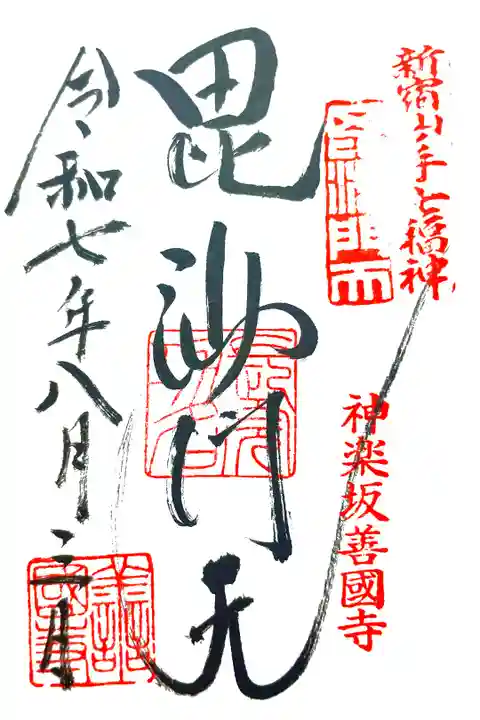 新宿山ノ手七福神
神楽坂善國寺
毘沙門天
令和七年八月二日